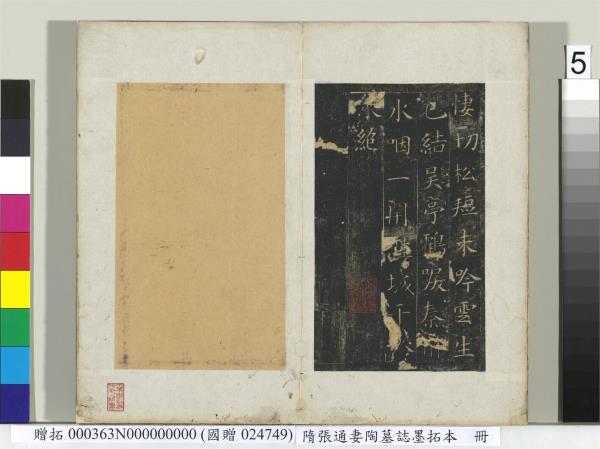 悽切松□未吟雲生
已結吴亭鵄唳秦川
水咽一閇□城千
永絶
5
贈拓 000363N000000000 (國贈 024749) 隋張通妻陶墓誌墨拓本 冊